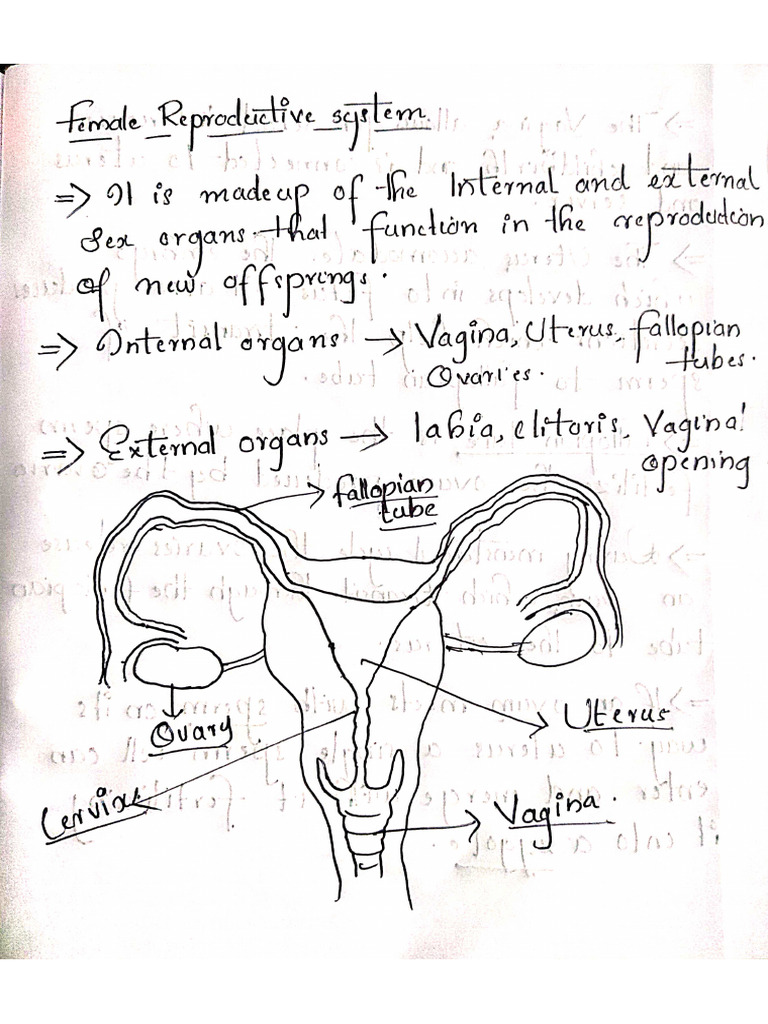 Female Reproductive system.
=> It is made up of the Internal and external
Sex organs that function in the reproduction
of new offsprings.
=> Internal organs → Vagina, Uterus, fallopian
tubes.
Ovaries.
=> External organs → labia, clitoris, Vaginal
opening
fallopian
tube
Ovary
Uterus
Cervix
Vagina.